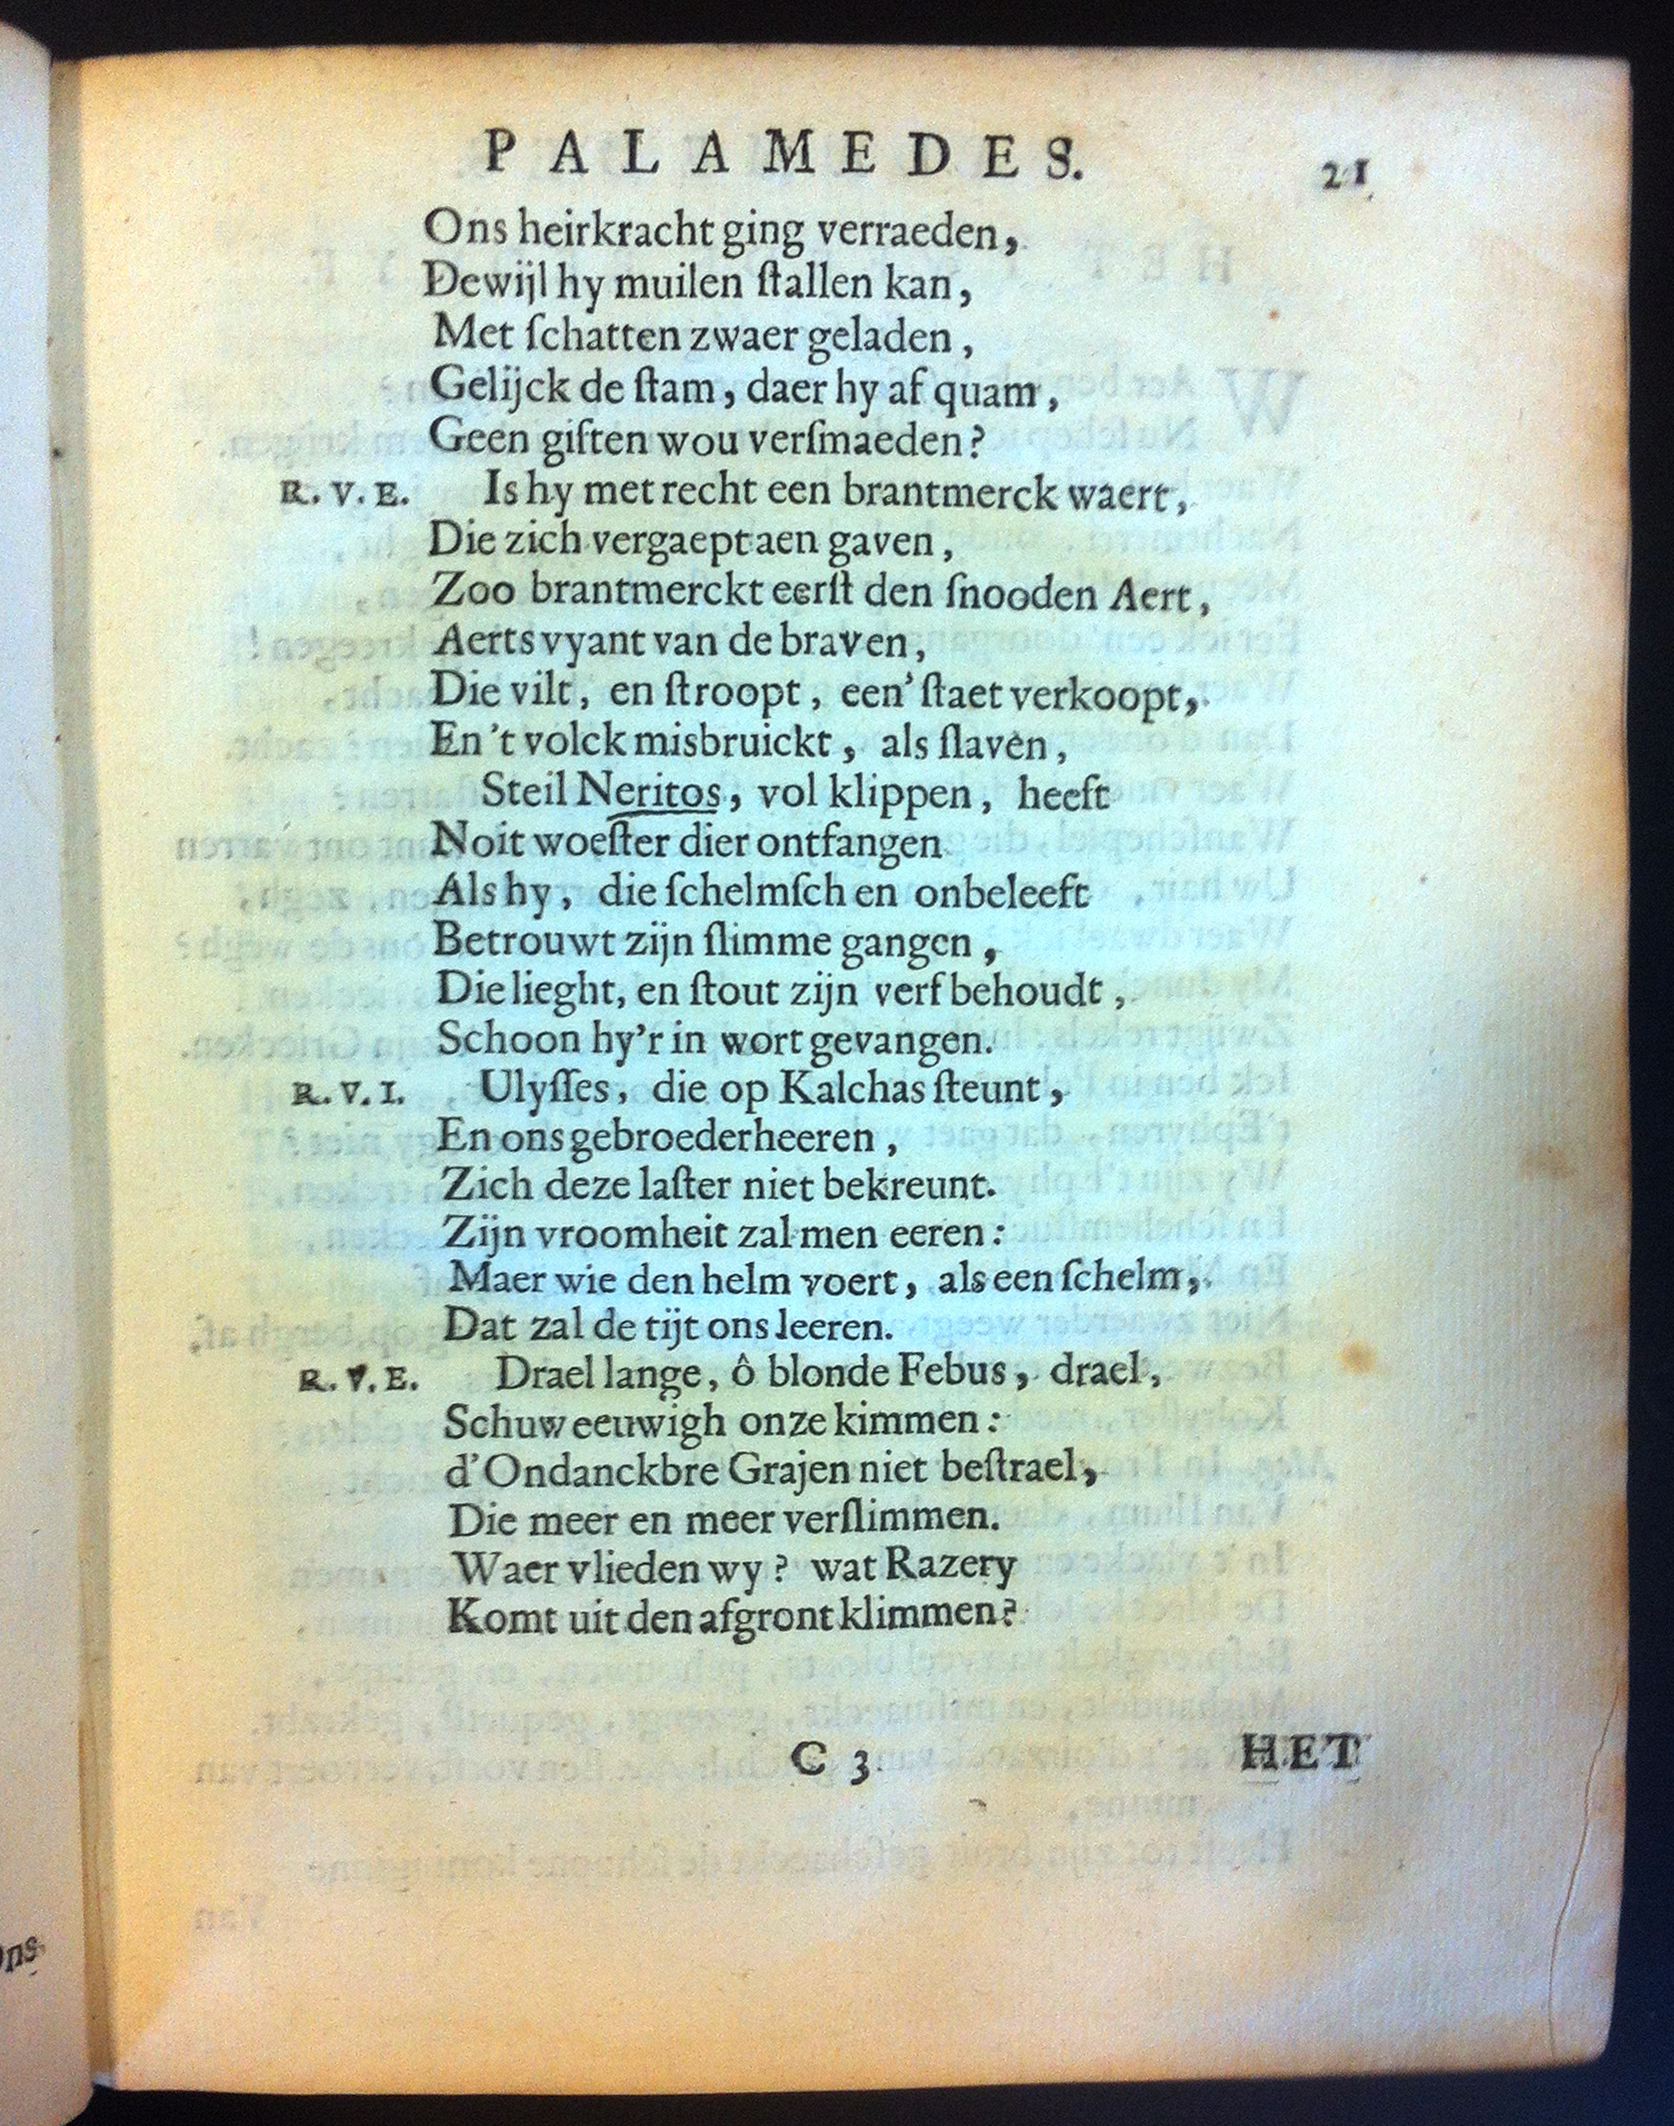 PALAMEDES. 21
Ons heirkracht ging verraeden,
Dewijl hy muilen ſtallen kan,
Met ſchatten zwaer geladen,
Gelijck de ſtam, daer hy af quam,
Geen giften wou verſmaeden?
R. V. E. Is hy met recht een brantmerck waert,
Die zich vergaept aen gaven,
Zoo brantmerckt eerſt den ſnooden Aert,
Aertsvyant van de braven,
Die vilt, en ſtroopt, een' ſtaet verkoopt,
En 't volck misbruickt, als ſlaven,
Steil Neritos, vol klippen, heeft
Noit woeſter dier ontfangen
Als hy, die ſchelmſch en onbeleeft
Betrouwt zijn ſlimme gangen,
Die lieght, en ſtout zijn verf behoudt,
Schoon hy'r in wort gevangen.
R. V. I. Ulyſſes, die op Kalchas ſteunt,
En ons gebroederheeren,
Zich deze laſter niet bekreunt.
Zijn vroomheit zal men eeren:
Maer wie den helm voert, als een ſchelm,
Dat zal de tijt ons leeren.
R. V. E. Drael lange, ô blonde Febus, drael,
Schuw eeuwigh onze kimmen:
d'Ondanckbre Grajen niet beſtrael,
Die meer en meer verſlimmen.
Waer vlieden wy? wat Razery
Komt uit den afgront klimmen?
C 3 HET
Ons